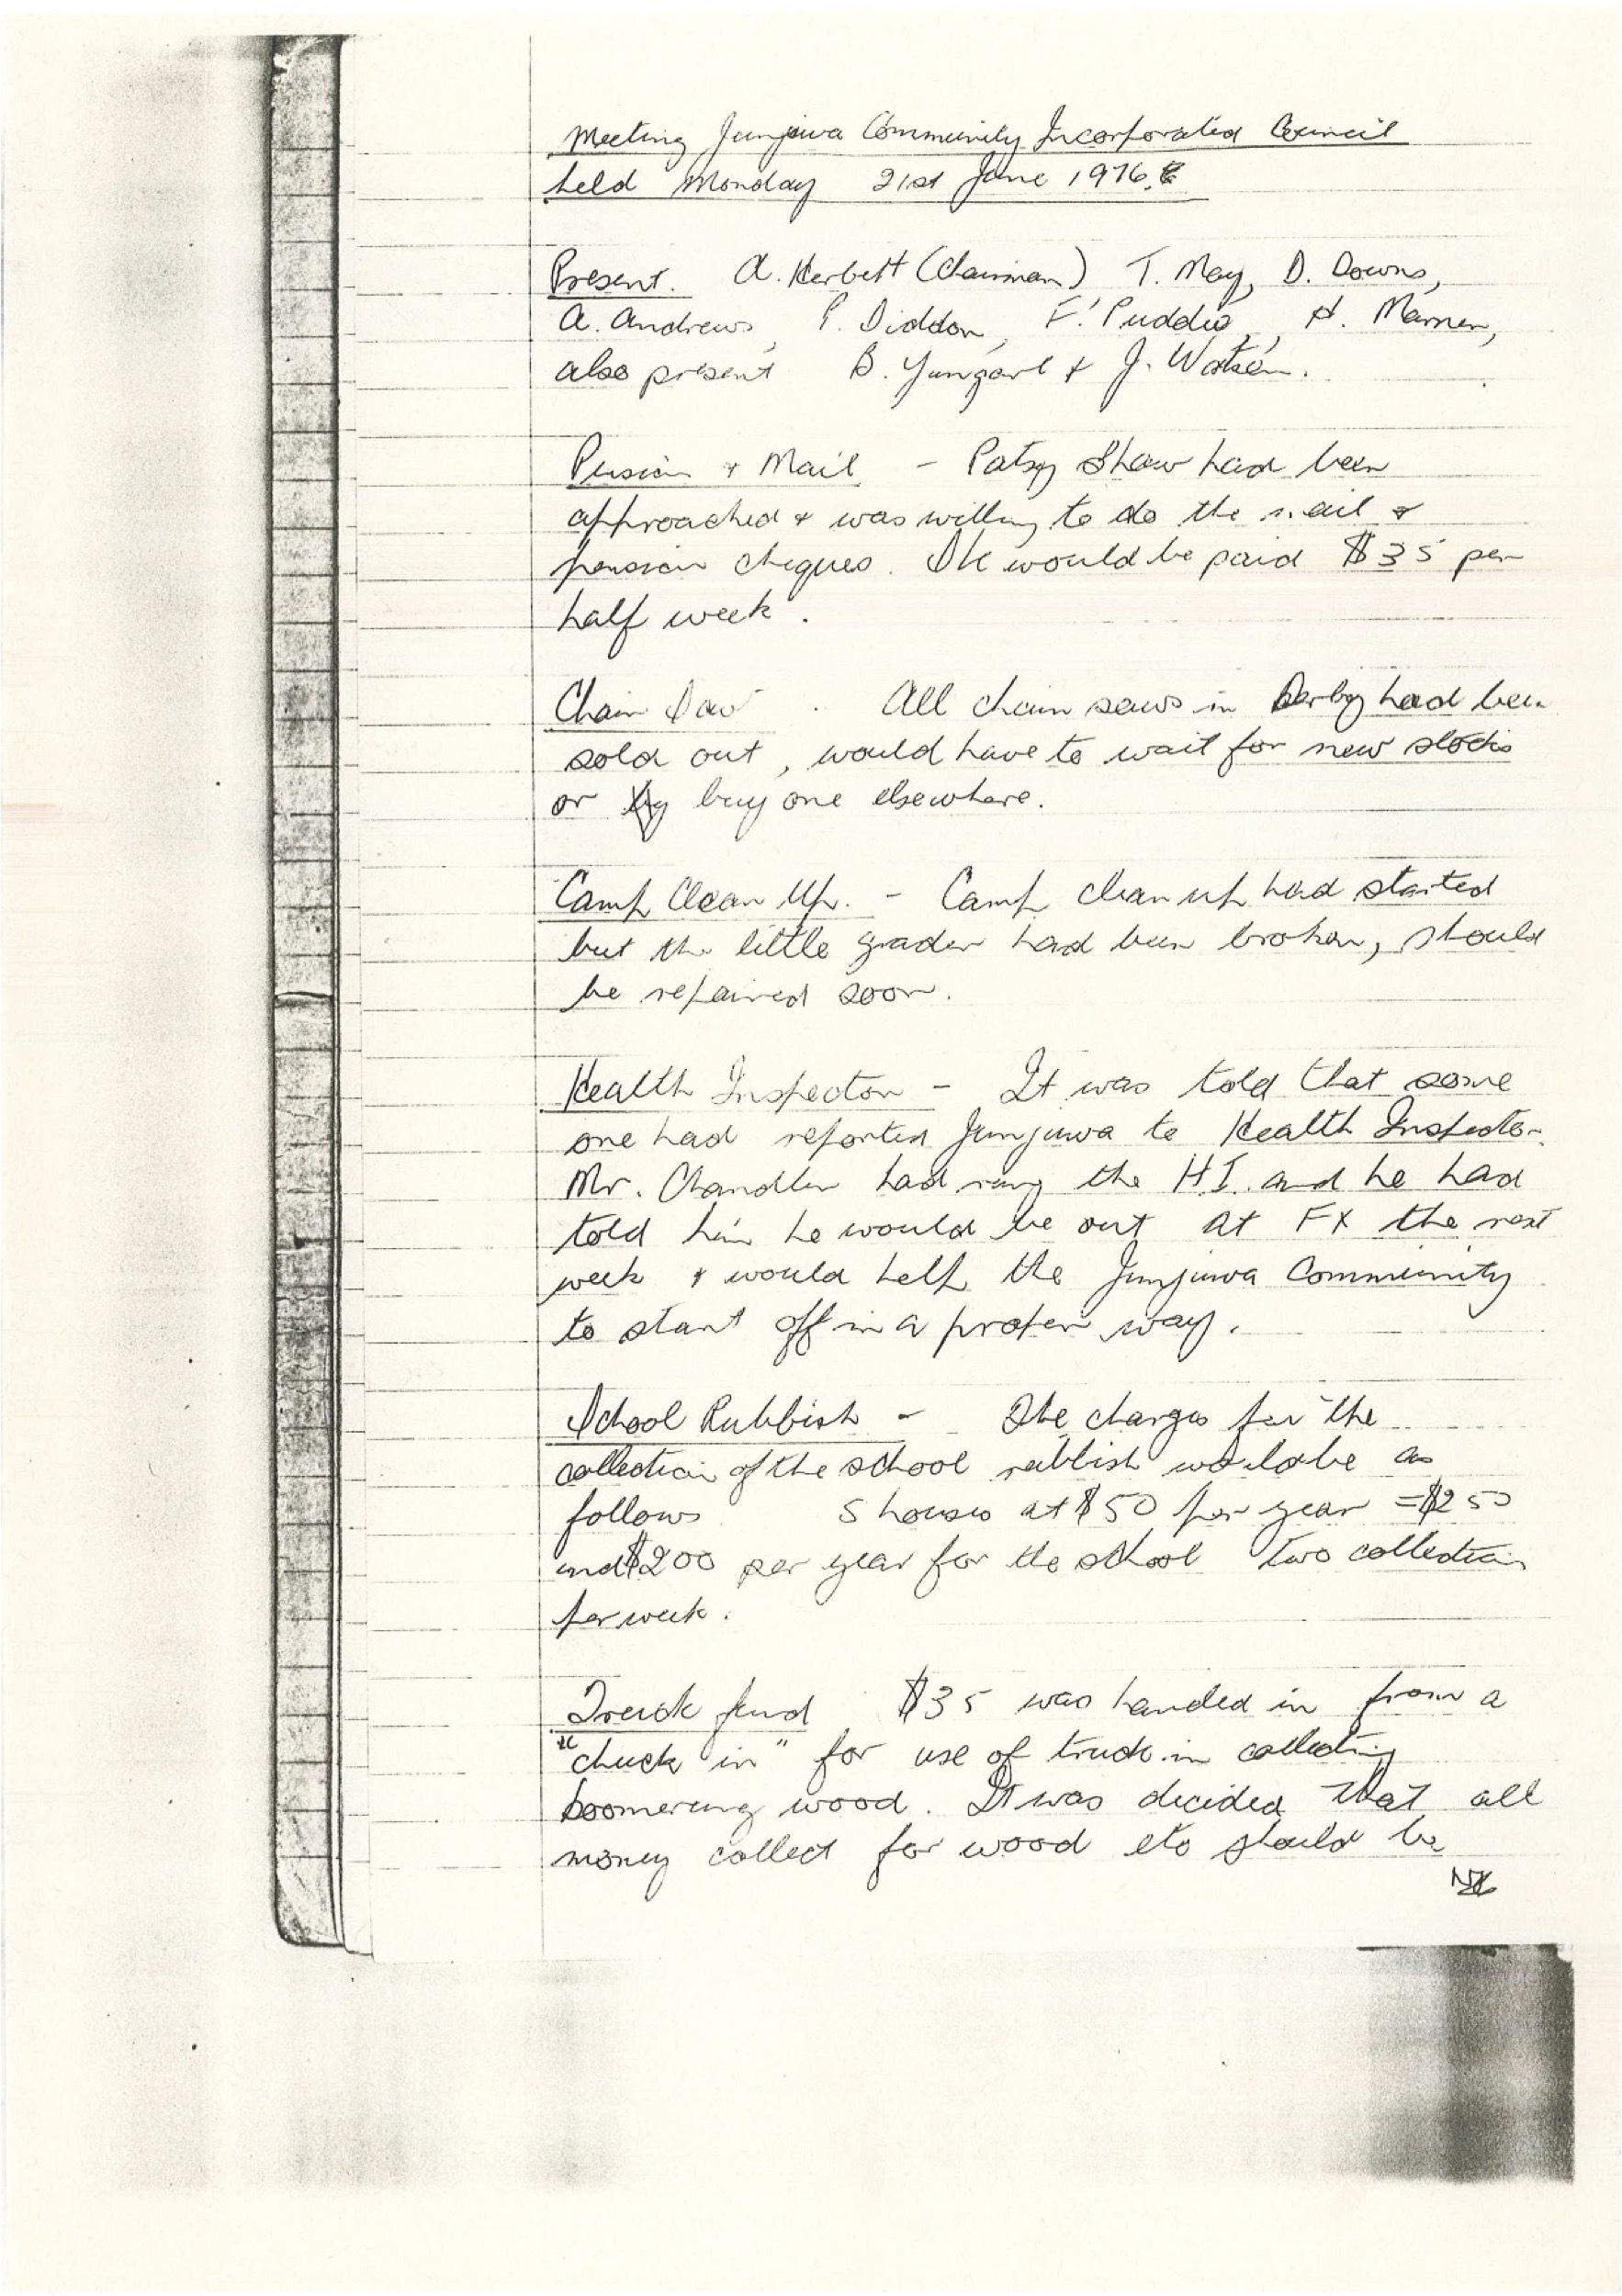 Meeting Junjuwa Community Incorporated Council
held Monday 21st June 1976.
Present. A. Herbett (Chairman) T. May, D. Downs,
A. Andrews, P. Diddon, F. Puddio, H. Marner,
also present B. Yungarl & J. Watson.
Pension & Mail - Patsy Shaw had been
approached & was willing to do the mail &
pension cheques. She would be paid $35 per
half week.
Chain Saw. All chain saws in Derby had been
sold out, would have to wait for new stocks
or buy one elsewhere.
Camp Clean Up. - Camp clean up had started
but the little grader had been broken, should
be repaired soon.
Health Inspector - It was told that some
one had reported Junjuwa to Health Inspector.
Mr. Chandler had rung the H.I. and he had
told him he would be out at FX the next
week & would help the Junjuwa Community
to start off in a proper way.
School Rubbish - The charges for the
collection of the school rubbish would be as
follows 5 houses at $50 per year = $250
and $200 per year for the school two collection
per week.
Truck fund $35 was handed in from a
"chuck in" for use of truck in collecting
boomerang wood. It was decided that all
money collect for wood etc should be